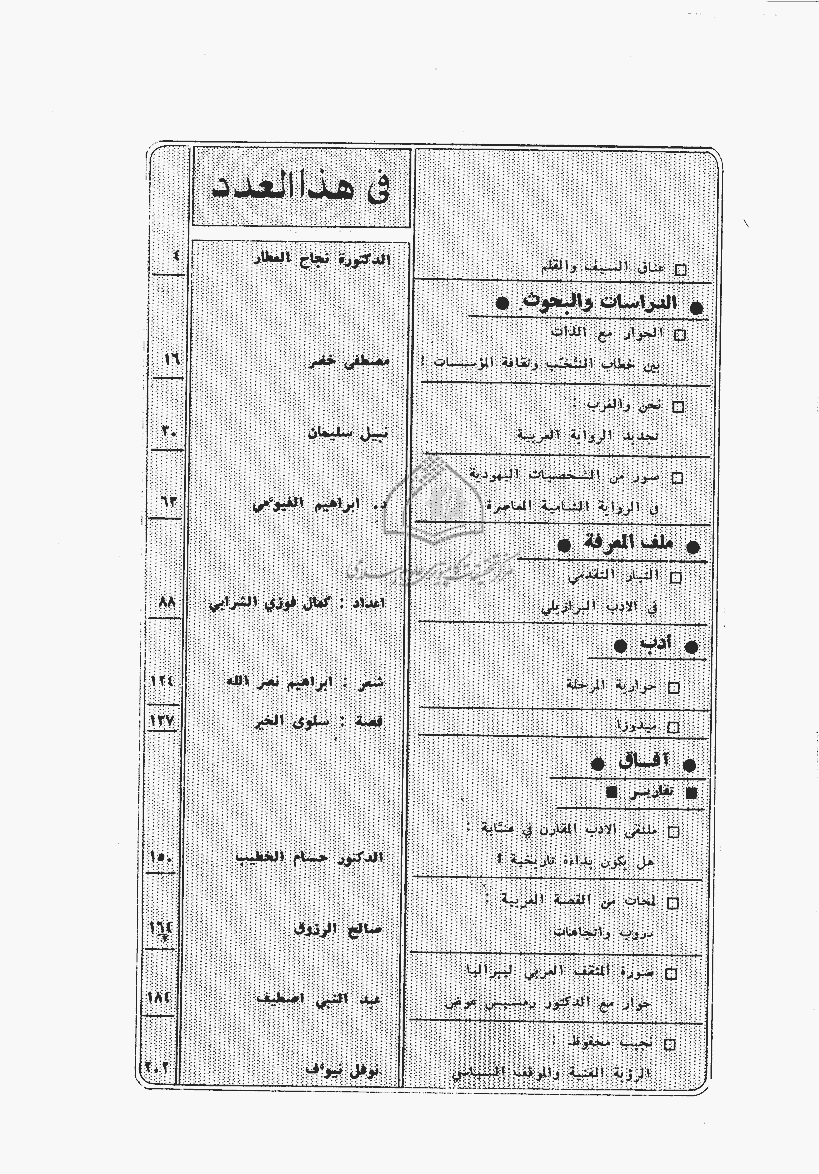 في هذا العدد
□ عناق السيف والقلم الدكتورة نجاح العطار ٤
● الدراسات والبحوث ●
□ الحوار مع الذات
بين خطاب النُّخَب وثقافة المؤسسات ! مصطفى خضر ١٦
□ نحن والغرب :
تحديد الرواية العربية نبيل سليمان ٣٠
□ صور من الشخصيات اليهودية
في الرواية الشامية المعاصرة د. ابراهيم الفيومي ٦٣
● ملف المعرفة ●
□ التيار التقدمي
في الادب البرازيلي اعداد : كمال فوزي الشرابي ٨٨
● أدب ●
□ حوارية المرحلة شعر : ابراهيم نصر الله ١٢٤
□ ميدوزا قصة : سلوى الخير ١٣٧
● آفــاق ●
■ تقاريـر ■
□ ملتقى الادب المقارن في عنـّابة :
هل يكون بداءة تاريخية ؟ الدكتور حسام الخطيب ١٥٠
□ لمحات من القصة العربية :
دروب واتجاهات صالح الرزوق ١٦٤
□ صورة المثقف العربي ليبراليا
حوار مع الدكتور رمسيس عوض عبد النبي اصطيف ١٨٤
□ نجيب محفوظ :
الرؤية الفنية والموقف السياسي نوفل نيوف ٢٠٢